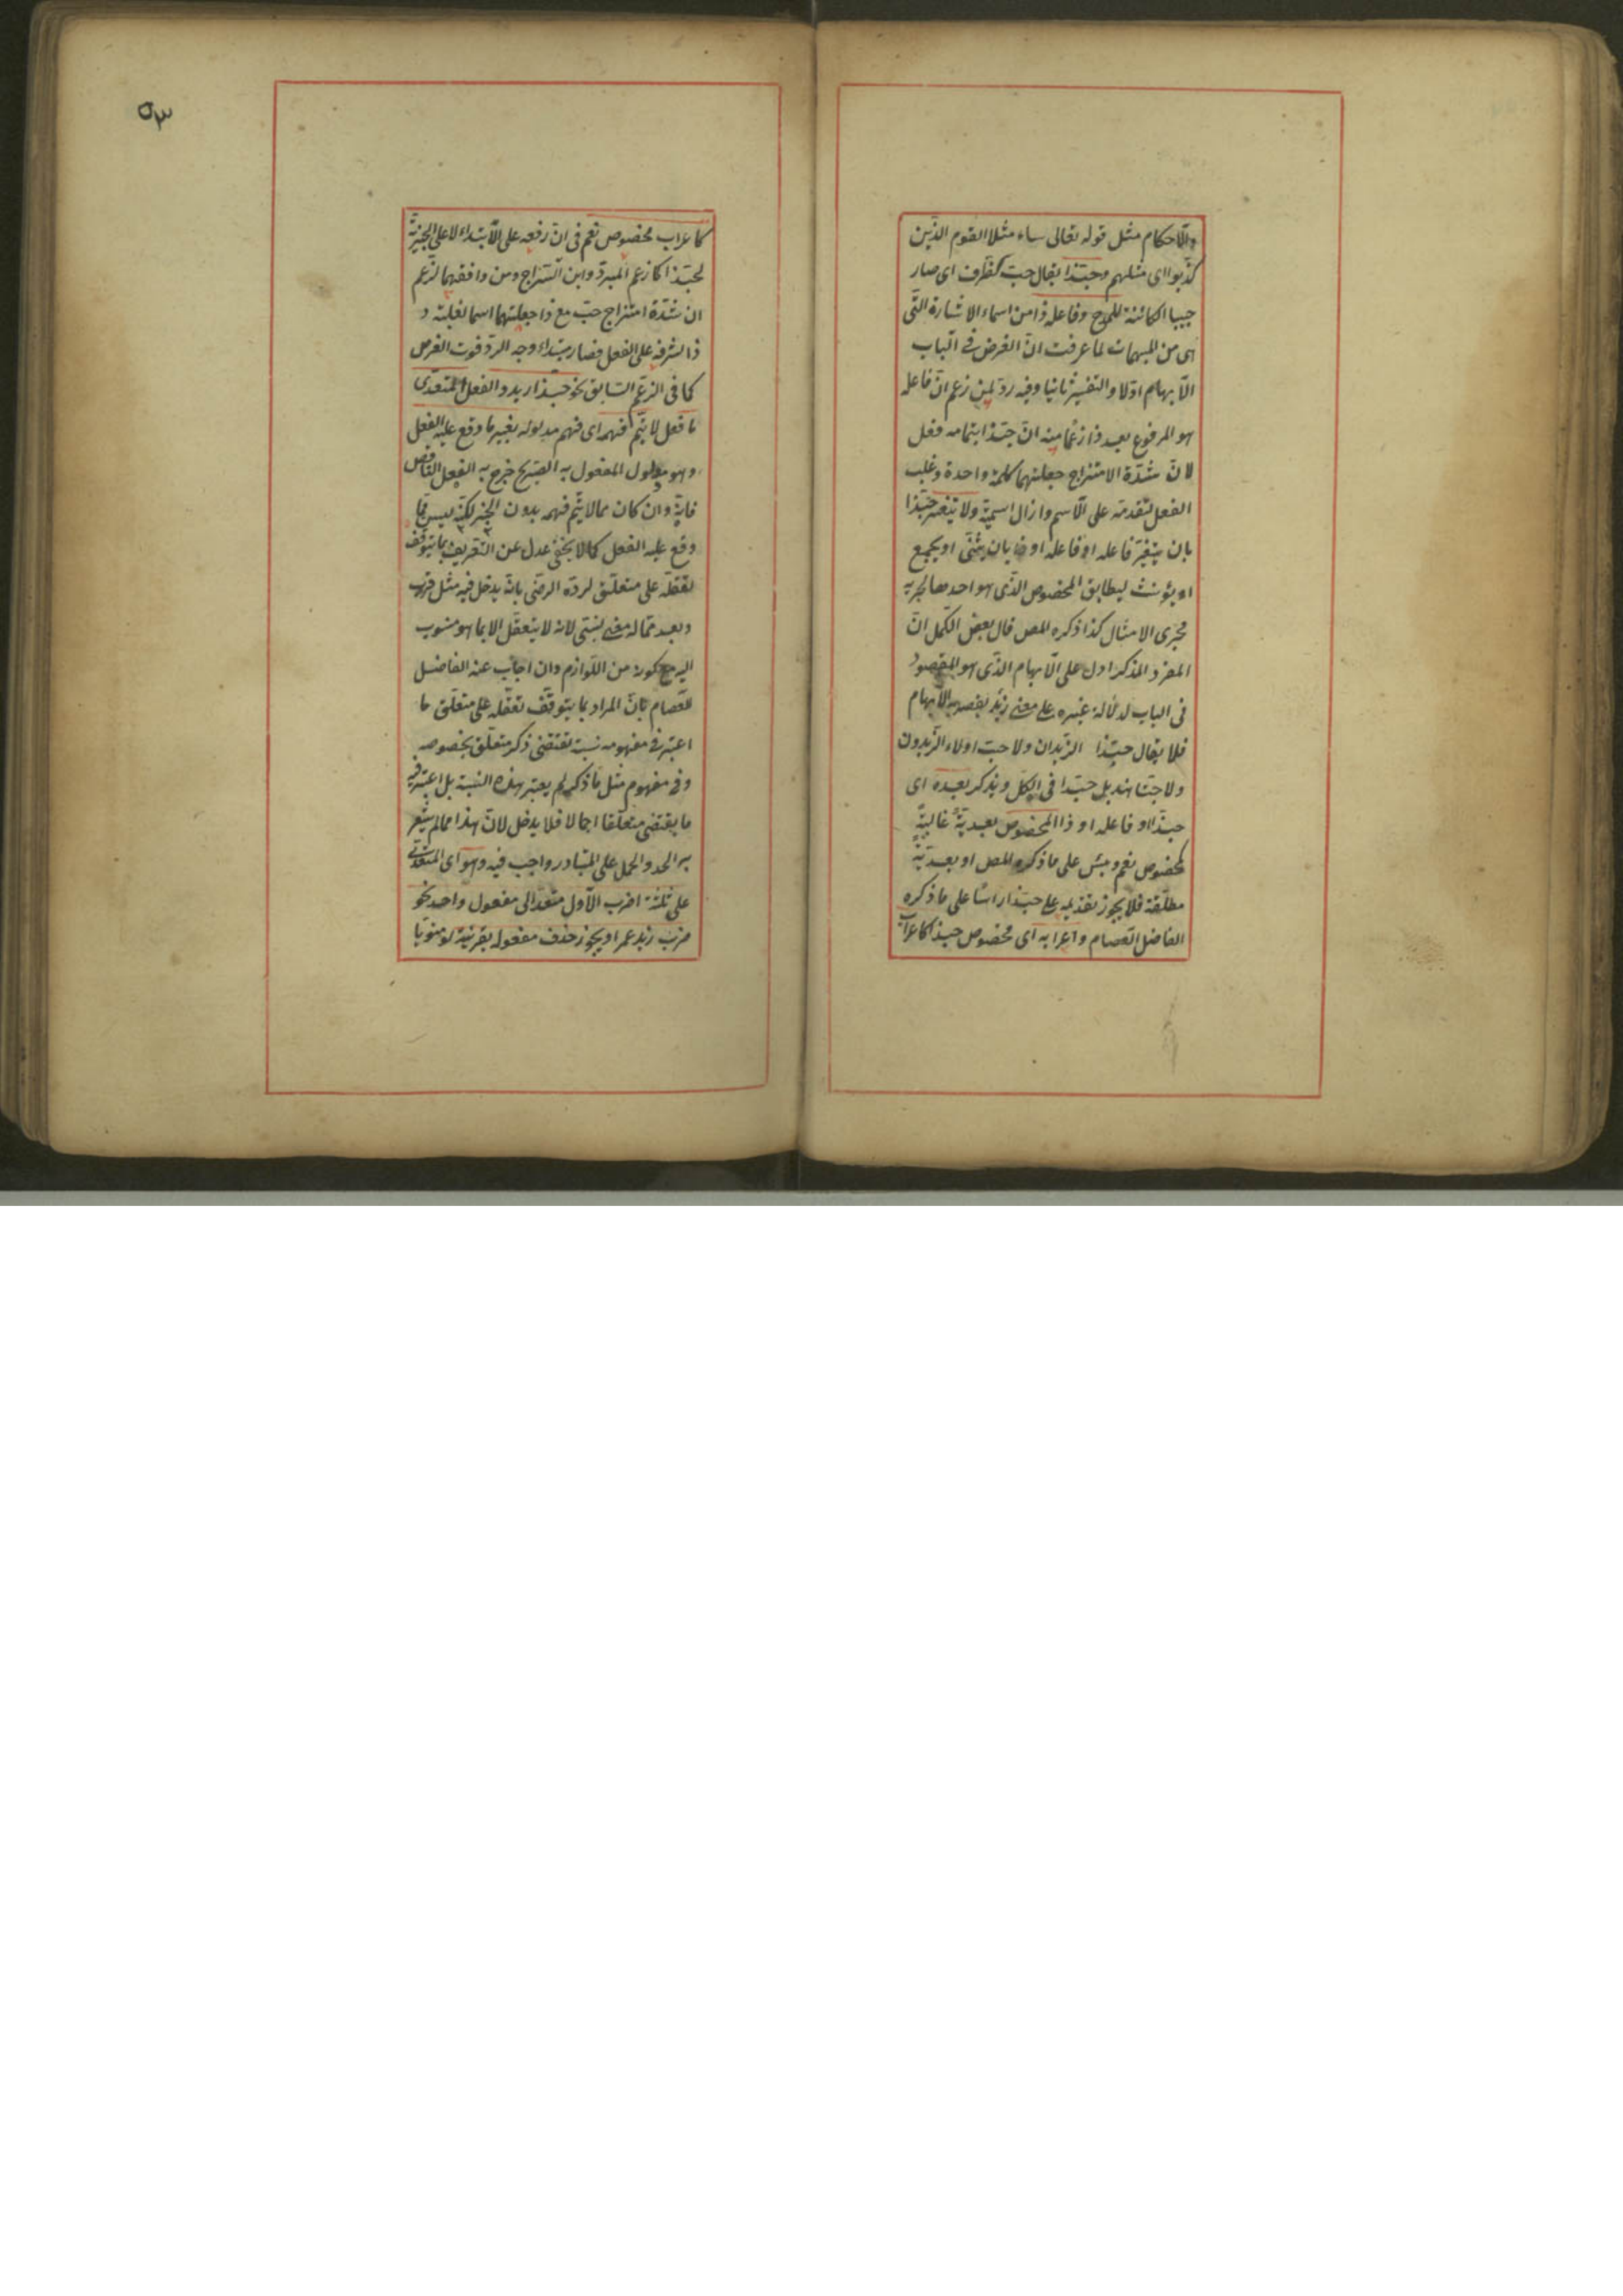 والاحكام مثل قوله تعالى ساء مثلا القوم الذين
كذبوا اى مثلهم وحبذا يقال حب كظرف اى صار
حبيبا الكائنة للمدح وفاعله ذا من اسماء الاشارة التى
هى من المبهمات لما عرفت ان الغرض فى الباب
الابهام اولا والتفسير ثانيا وفيه رد لمن زعم ان فاعله
هو المرفوع بعيد ذا زعما منه ان حبذا بتمامه فعل
لان شدة الامتزاج جعلتهما كلمة واحدة وغلب
الفعل لتقدمه على الاسم وازال اسميته ولا يتغير حبذا
بان يتغير فاعله او فاعله او ذا بان يثنى او يجمع
او يؤنث ليطابق المخصوص الذى هو احد صا لجريه
مجرى الامثال كذا ذكره المص قال بعض الكمل ان
المفرد المذكر ادل على الابهام الذى هو المقصود
فى الباب لدلالة غيره على معنى زائد يقصر به الابهام
فلا يقال حبذا الزيدان ولا حب اولاء الزيدون
ولا حبتا هند بل حبذا فى الكل ويذكر بعيده اى
حبذا او فاعله او ذا المخصوص بعيدية غالبية
كمخصوص نعم وبئس على ما ذكره المص او بعيدية
مطلقة فلا يجوز تقديمه على حبذا راسا على ما ذكره
الفاضل العصام واعرابه اى مخصوص حبذا كاعراب
٥٣
كاعراب مخصوص نعم فى ان رفعه على الابتداء لا على الخبرية
لحبذا كما زعم المبرد وابن السراج ومن وافقهما لزعم
ان شدة امتزاج حب مع ذا جعلتهما اسما لغلبته و
ذا لشرفه على الفعل فصار مبتداء وجه الرد فوت الغرض
كما فى الزعم السابق نحو حبذا زيد والفعل المتعدى
ما فعل لا يتم فهمه اى فهم مدلوله بغير ما وقع عليه الفعل
وهو مدلول المفعول به الصريح خرج به الفعل الناقص
فانه وان كان مما لا يتم فهمه بدون الخبر لكنه ليس مما
وقع عليه الفعل كما لا يخفى عدل عن التعريف بما يتوقف
تعقله على متعلق لرده الرضى بانه يدخل فيه مثل قرب
وبعد مما له معنى نسبى لانه لا يتعقل الا بما هو منسوب
اليه مع كونه من اللوازم وان اجاب عنه الفاضل
العصام بان المراد بما يتوقف تعقله على متعلق ما
اعتبر فى مفهومه نسبة تقتضى ذكر متعلق بخصوصه
وفى مفهوم مثل ما ذكر لم يعتبر هذه النسبة بل اعتبر فيه
ما يقتضى متعلقا اجمالا فلا يدخل لان هذا مما لم يشعر
به الحد والحمل على المتبادر واجب فيه وهو اى المتعدى
على ثلثة اضرب الاول متعد الى مفعول واحد نحو
ضرب زيد عمرا ويجوز حذف مفعوله بقرينة او منويا